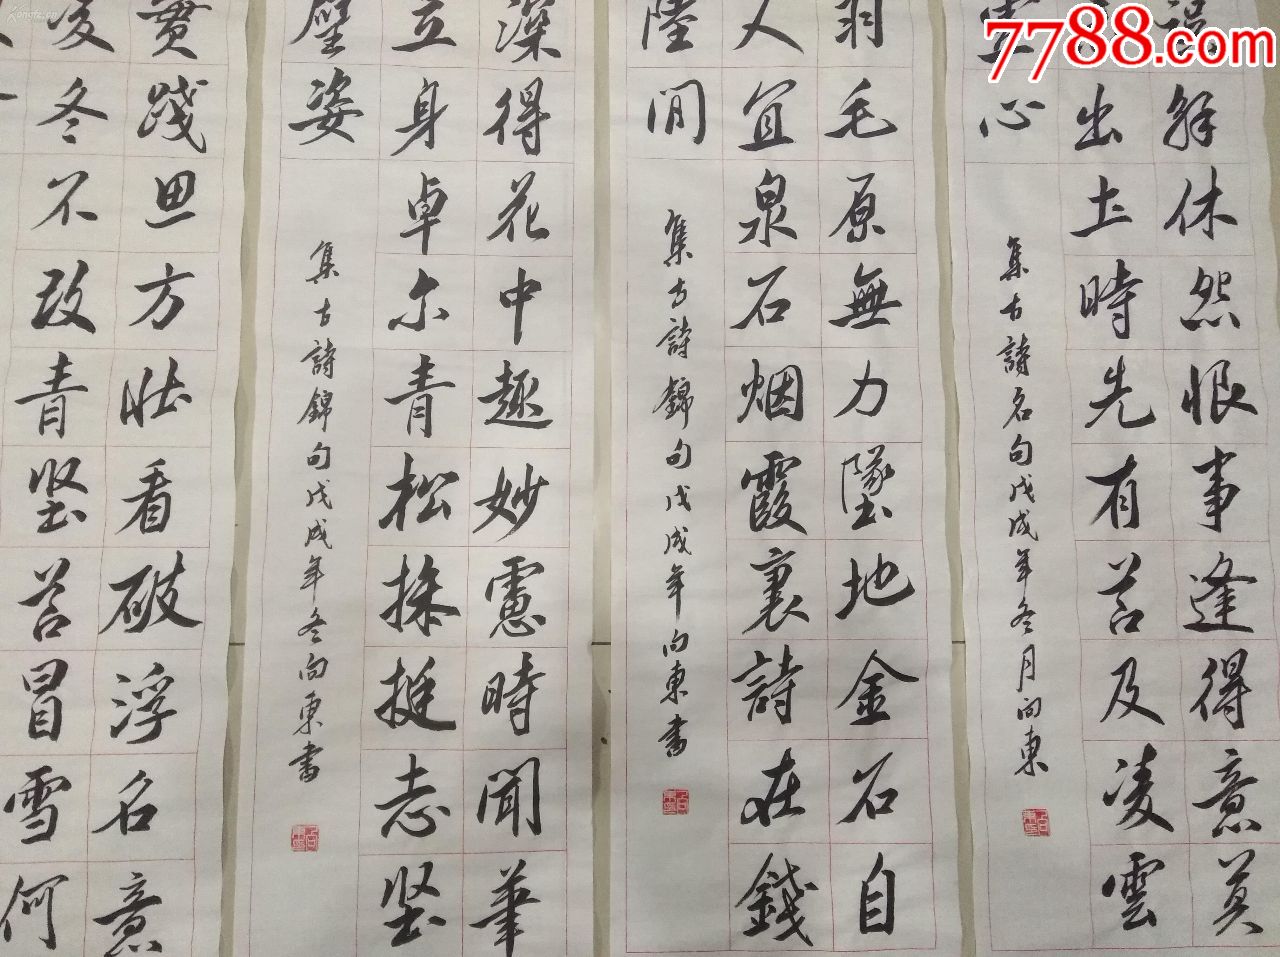 7788.com
解休怨恨事逢得意莫
出土時先有若及凌雲
心
集古詩名句戊戌年冬月向東
羽毛原無力墜地金石自
人宜泉石烟霞裏詩在錢
陸間
集古詩錦句戊戌年向東書
深得花中趣妙慮時聞筆
立身卓尔青松操挺志坚
璧姿
集古詩錦句戊戌年冬向東書
贯踐思方壮看破浮名意
冬不改青坚若冒雪何